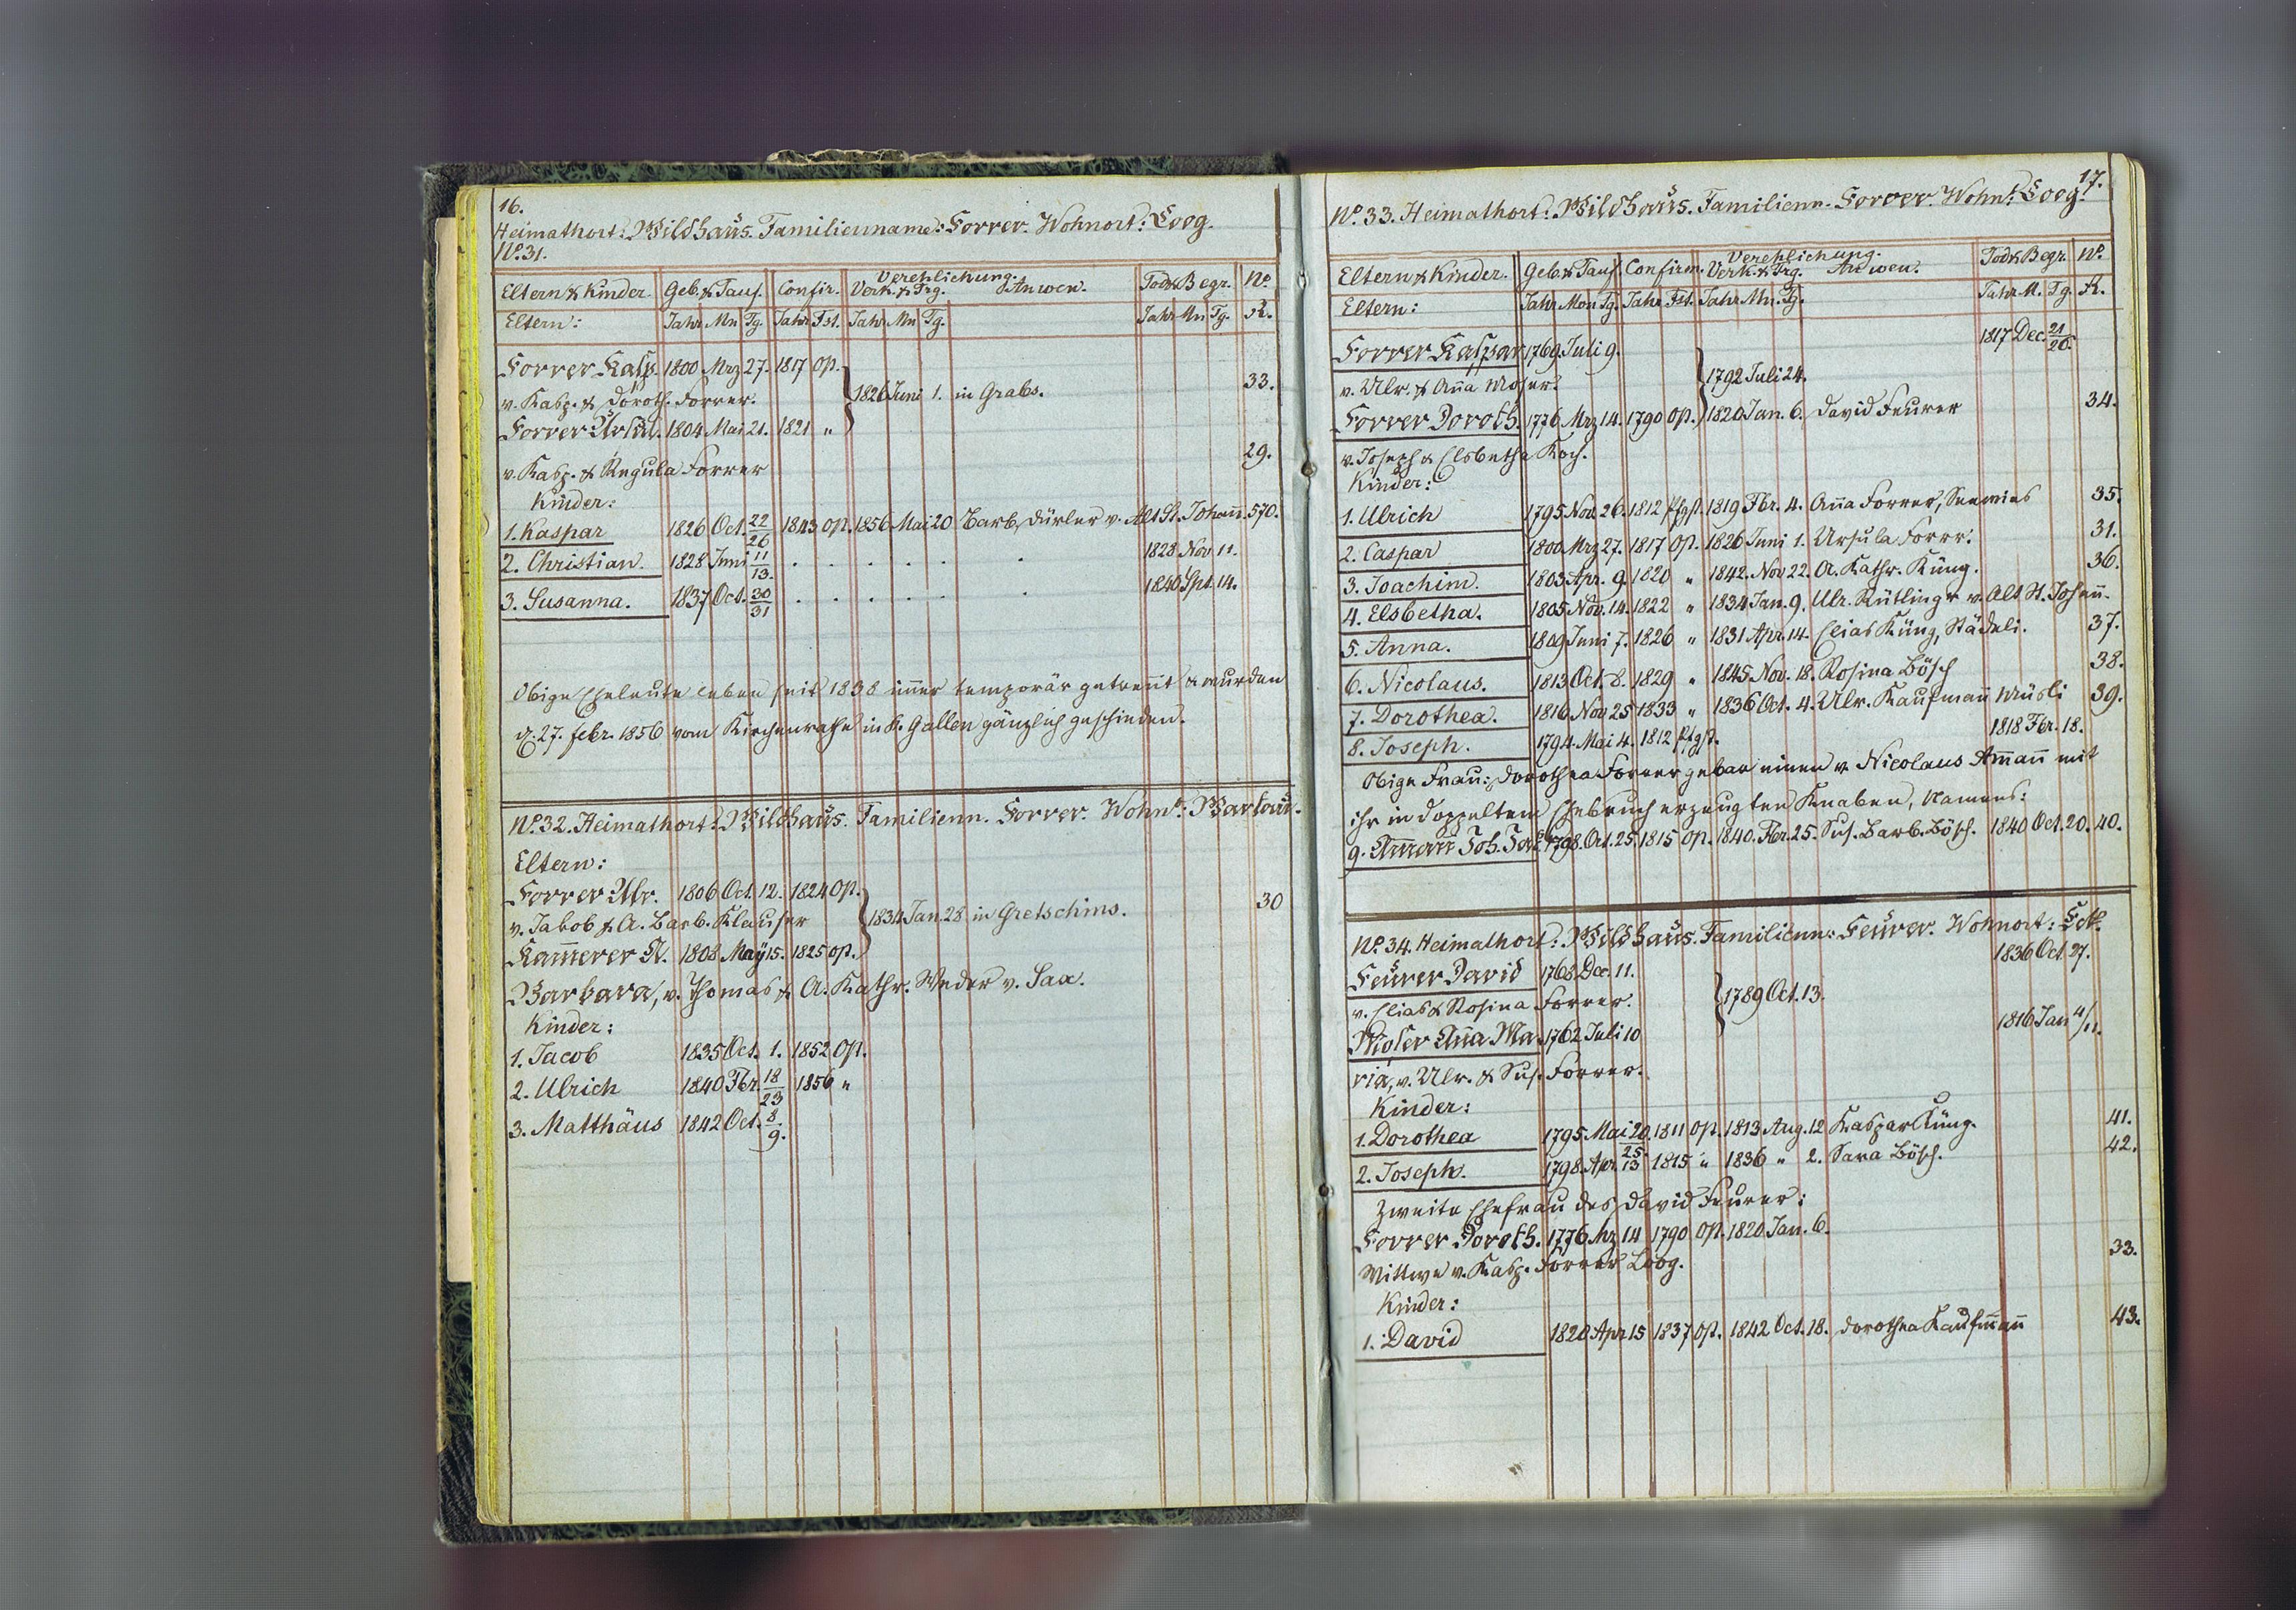 16.
Heimathort: Wildhaus. Familienname: Forrer. Wohnort: Loog.
No. 31.
Eltern & Kinder. Geb. & Tauf. Confir. Verehlichung. Verk. & Trg. Anwen. Tod & Begr. No.
Eltern: Jahr Mn Tg. Jahr Fst. Jahr Mn Tg. Jahr Mn Tg. R.
Forrer Kasp. 1800 Mrz 27. 1817 Op.
v. Kasp. & Doroth. Forrer. 1826 Juni 1. in Grabs. 33.
Forrer Ursul. 1804 Mai 21. 1821 "
v. Kasp. & Regula Forrer 29.
Kinder:
1. Kaspar 1826 Oct. 22/26 1843 Op. 1856 Mai 20 Barb. Dürler v. Alt St. Johann. 570.
2. Christian. 1828 Juni 11/13. . . . . . . . 1828 Nov 11.
3. Susanna. 1837 Oct. 30/31 . . . . . . . 1840 Spt. 14.
Obige Eheleute leben seit 1838 immer temporär getrennt & wurden
d. 27. Febr. 1856 vom Kirchenrathe in St. Gallen gänzlich geschieden.
No. 32. Heimathort: Wildhaus. Familienn. Forrer. Wohnt:
Eltern:
Forrer Ulr. 1806 Oct. 12. 1824 Op.
v. Jakob & A. Barb. Klauser 1834 Jan. 28 in Gretschins. 30
Kam̄erer A. 1808 Maÿ 15. 1825 Op.
Barbara, v. Thomas & A. Kathr. Weder v. Sax.
Kinder:
1. Jacob 1835 Oct. 1. 1852 Op.
2. Ulrich 1840 Fbr. 18/23 1856 "
3. Matthäus 1842 Oct. 8./9.
17.
No. 33. Heimathort: Wildhaus. Familienn. Forrer. Wohnt: Loog.
Eltern & Kinder. Geb. & Tauf. Confirm. Verehlichung. Verk. & Trg. Anwen. Tod & Begr. No.
Eltern: Jahr Mon Tg. Jahr Fst. Jahr Mn. Tg. Jahr M. Tg. R.
Forrer Kaspar 1769 Juli 9. 1817 Dec. 21/26.
v. Ulr. & An̄a Moser. 1792 Juli 24.
Forrer Doroth. 1776 Mrz 14. 1790 Op. 1820 Jan. 6. David Feurer 34.
v. Joseph & Elsbetha Koch.
Kinder:
1. Ulrich 1795 Nov. 26. 1812 Pfgst. 1819 Fbr. 4. An̄a Forrer, 35.
2. Caspar 1800 Mrz 27. 1817 Op. 1826 Juni 1. Ursula Forrr. 31.
3. Joachim. 1803 Apr. 9. 1820 " 1842. Nov 22. A. Kathr. Küng. 36.
4. Elsbetha. 1805 Nov. 14. 1822 " 1834 Jan. 9. Ulr. Rütlingr v. Alt St. Johan̄.
5. Anna. 1809 Juni 7. 1826 " 1831 Apr. 14. Elias Küng, Städeli. 37.
6. Nicolaus. 1813 Oct. 8. 1829 " 1845 Nov. 18. Rosina Bösch 38.
7. Dorothea. 1816 Nov 25 1833 " 1836 Oct. 4. Ulr. Kaufman̄ Müsli 39.
8. Joseph. 1794. Mai 4. 1812 Pfgst. 1818 Fbr. 18.
Obige Frau: Dorothea Forrer gebar einen v. Nicolaus Am̄an̄ mit
ihr in doppeltem Ehebruch erzeugten Knaben, Namens:
9. Am̄an̄ Joh. Jak. 1798. Oct. 25. 1815 Op. 1840. Fbr. 25. Sus. Barb. Bösch. 1840 Oct. 20. 40.
No. 34. Heimathort: Wildhaus. Familienn: Feurer. Wohnort:
Feurer David 1768 Dec. 11. 1836 Oct. 27.
v. Elias & Rosina Forrer. 1789 Oct. 13.
Moser An̄a Ma- 1762 Juli 10 1816 Jan 4/11.
ria, v. Ulr. & Sus. Forrer.
Kinder:
1. Dorothea 1795 Mai 20./25. 1811 Op. 1813 Aug. 12 Kaspar Küng. 41.
2. Joseph. 1798. Apr. 13 1815 " 1836 " 2. Sara Bösch. 42.
Zweite Ehefrau des David Feurer:
Forrer Doroth. 1776 Mz 14 1790 Op. 1820 Jan. 6. 33.
Wittwe v. Kasp. Forrer Loog.
Kinder:
1. David 1820 Apr 15 1837 Op. 1842 Oct. 18. Dorothea Kaufman̄ 43.